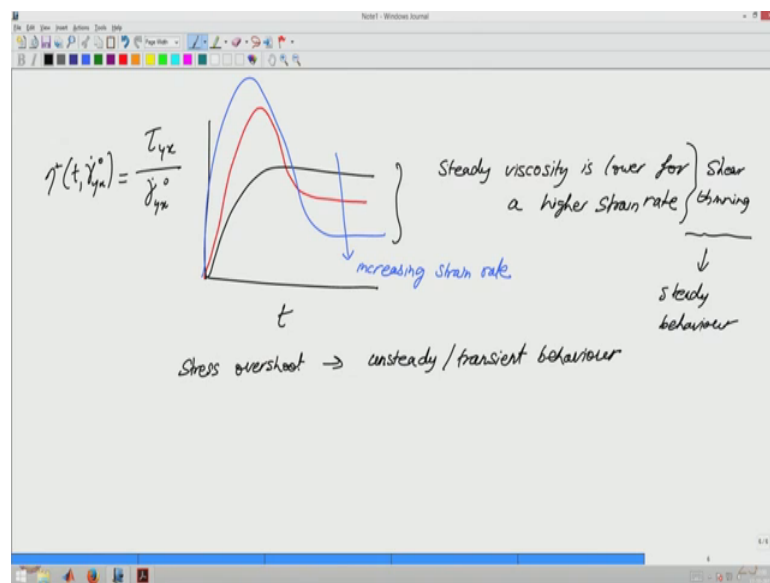 Note1 - Windows Journal
File Edit View Insert Actions Tools Help
Page Width
B I
η⁺(t, γ̇°yx) = τyx / γ̇°yx
t
increasing strain rate
Steady viscosity is lower for
a higher strain rate
Shear
thinning
steady
behaviour
Stress overshoot → unsteady/transient behaviour